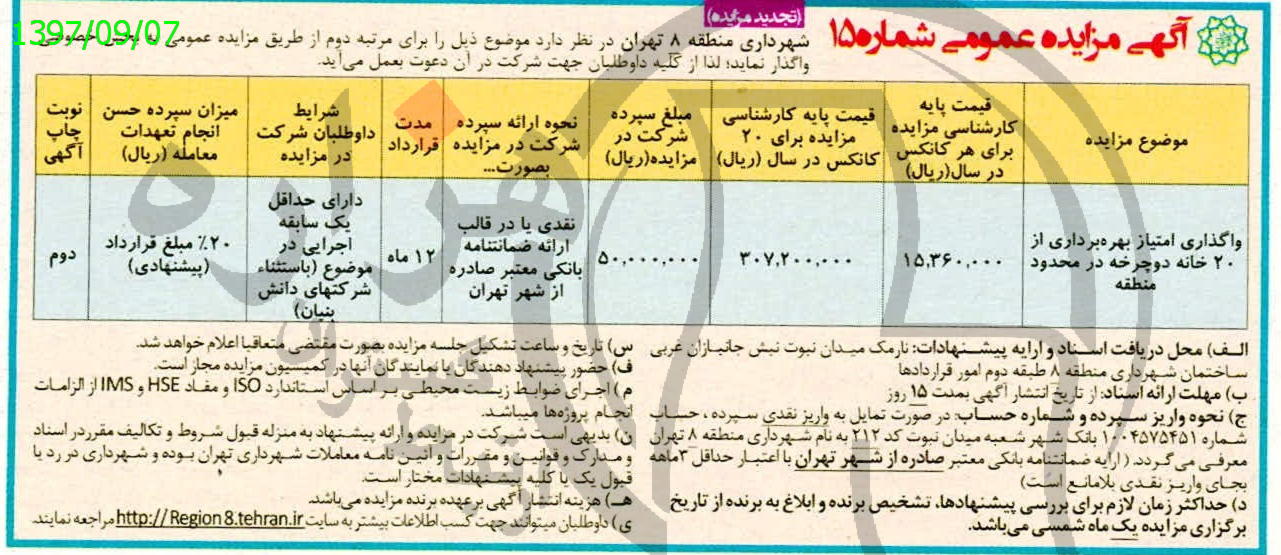 1397/09/07
(تجدید مزایده)
آگهی مزایده عمومی شماره۱۵
شهرداری منطقه ۸ تهران در نظر دارد موضوع ذیل را برای مرتبه دوم از طریق مزایده عمومی به بخش خصوصی
واگذار نماید؛ لذا از کلیه داوطلبان جهت شرکت در آن دعوت بعمل می‌آید.
موضوع مزایده
قیمت پایه
کارشناسی مزایده
برای هر کانکس
در سال(ریال)
قیمت پایه کارشناسی
مزایده برای ۲۰
کانکس در سال (ریال)
مبلغ سپرده
شرکت در
مزایده(ریال)
نحوه ارائه سپرده
شرکت در مزایده
بصورت...
مدت
قرارداد
شرایط
داوطلبان شرکت
در مزایده
میزان سپرده حسن
انجام تعهدات
معامله (ریال)
نوبت
چاپ
آگهی
واگذاری امتیاز بهره‌برداری از
۲۰ خانه دوچرخه در محدود
منطقه
۱۵,۳۶۰,۰۰۰
۳۰۷,۲۰۰,۰۰۰
۵۰,۰۰۰,۰۰۰
نقدی یا در قالب
ارائه ضمانتنامه
بانکی معتبر صادره
از شهر تهران
۱۲ ماه
دارای حداقل
یک سابقه
اجرایی در
موضوع (باستثناء
شرکتهای دانش
بنیان)
۲۰٪ مبلغ قرارداد
(پیشنهادی)
دوم
الـف) محل دریافت اسـناد و ارایه پیشـنهادات: نارمک میـدان نبوت نبش جانبـازان غربی
ساختمان شـهرداری منطقه ۸ طبقه دوم امور قراردادها
ب) مهلت ارائه اسناد: از تاریخ انتشار آگهی بمدت ۱۵ روز
ج) نحوه واریز سـپرده و شـماره حسـاب: در صورت تمایل به واریز نقدی سـپرده ، حسـاب
شماره ۱۰۰۴۵۷۵۴۵۱ بانک شـهر شـعبه میدان نبوت کد ۲۱۲ به نام شـهرداری منطقه ۸ تهران
معرفـی می گـردد. ( ارایه ضمانتنامه بانکی معتبر صادره از شـهر تهران با اعتبـار حداقل ۳ماهه
بجای واریـز نقـدی بلامانـع اسـت)
د) حداکثر زمان لازم برای بررسی پیشنهادها، تشخیص برنده و ابلاغ به برنده از تاریخ
برگزاری مزایده یک ماه شمسی می‌باشد.
س) تاریخ و ساعت تشکیل جلسه مزایده بصورت مقتضی متعاقبا اعلام خواهد شد.
ف) حضور پیشنهاد دهندگان یا نمایندگان آنها در کمیسیون مزایده مجاز است.
م ) اجـرای ضوابـط زیسـت محیطـی بـر اسـاس اسـتاندارد ISO و مفـاد HSE و IMS از الزامـات
انجـام پروژه‌ها میباشـد.
ن) بدیهی اسـت شـرکت در مزایده و ارائه پیشـنهاد به منزله قبول شـروط و تکالیف مقرردر اسناد
و مدارک و قوانیـن و مقـررات و آئیـن نامـه معاملات شـهرداری تهران بـوده و شـهرداری در رد یا
قبول یک یا کلیه پیشـنهادات مختار اسـت.
هـ) هزینه انتشـار آگهی بر عهده برنده مزایده می‌باشد.
ی ) داوطلبان میتوانند جهت کسب اطلاعات بیشتر به سایت http://Region8.tehran.ir مراجعه نمایند.